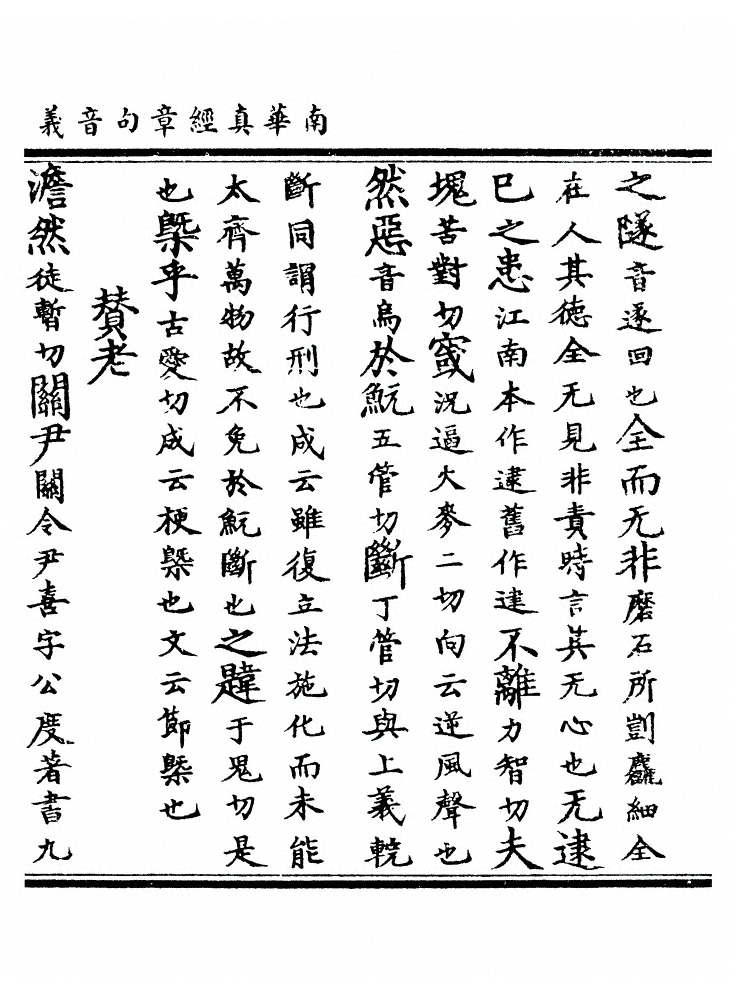 南華真經章句音義
之隧音遂回也全而无非磨石所剴麤細全
在人其德全无見非責時言其无心也无逮
已之患江南本作逮舊作建不離力智切夫
塊苦對切窢況逼火麥二切向云逆風聲也
然惡音烏於魭五管切斷丁管切與上義輐
斷同謂行刑也成云雖復立法施化而未能
太齊萬物故不免於魭斷也之韙于鬼切是
也槩乎古愛切成云梗槩也文云節槩也
賛老
澹然徒暫切關尹關令尹喜字公度著書九